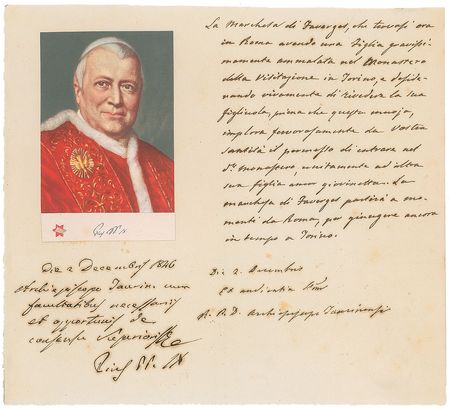 La Marchesa di Faverges, che trovasi ora
in Roma avendo una figlia gravissi-
mamente ammalata nel Monastero
della Visitazione in Torino, e deside-
rando vivamente di rivedere la sua
figliuola, prima che questa muoja,
implora fervorosamente da Vostra
Santità il permesso di entrare nel
monastero, unitamente ad altra
sua figlia ancor giovinetta. La
marchesa di Faverges partirà a mo-
menti da Roma, per giungere ancora
in tempo a Torino.
Die 2. Decembris
Ex audientia
Archiepiscopo Taurinensi
Pius PP. IX
Die 2 Decembris 1846
Archiepiscopo Taurin. cum
facultatibus necessariis
et opportunis de
consensu
Pius PP. IX